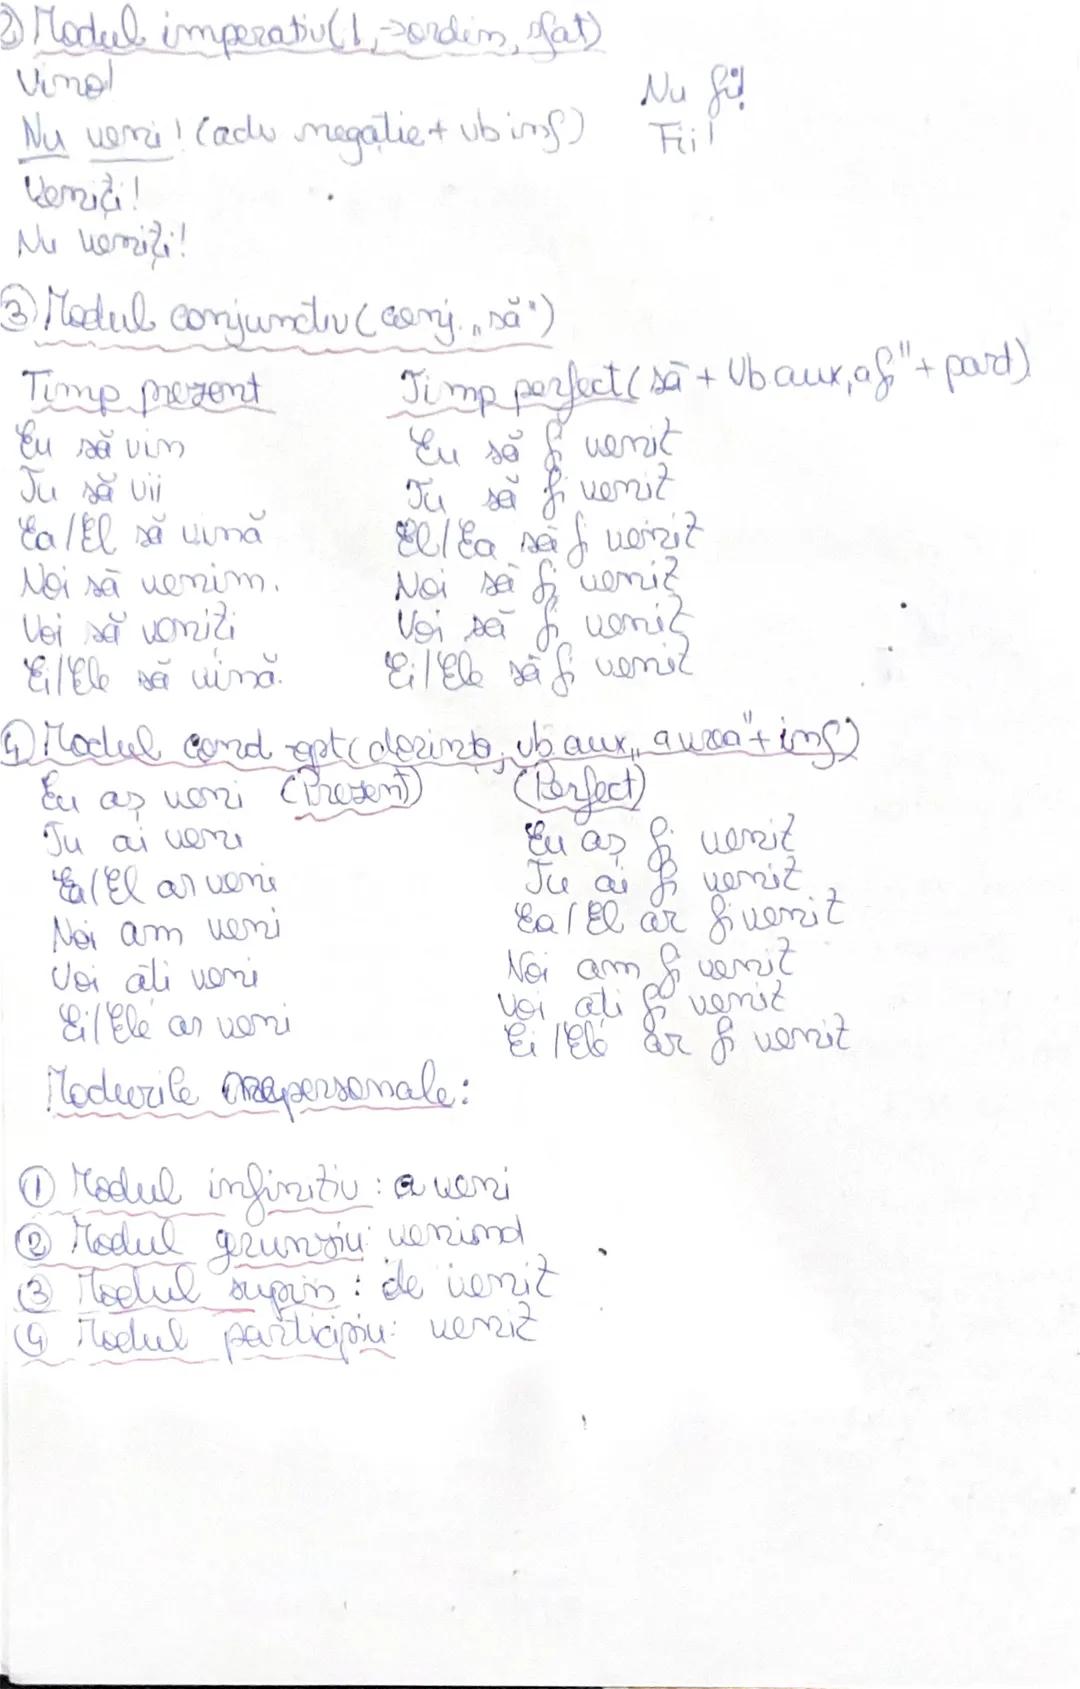 2) Modul imperativ (!, -> ordin, sfat)
Vino!
Nu fi!
Nu veni! (adv negație + vb inf)
Fii!
Veniți!
Nu veniți!
3) Modul conjunctiv (conj. „să")
Timp prezent
Timp perfect (să + vb aux „a fi" + part)
Eu să vin
Eu să fi venit
Tu să vii
Tu să fi venit
Ea/El să vină
El/Ea să fi venit
Noi să venim.
Noi să fi venit
Voi să veniți
Voi să fi venit
Ei/Ele să vină.
Ei/Ele să fi venit
4) Modul cond opt (dorință, vb aux „a vrea" + inf)
Eu aș veni (Prezent)
(Perfect)
Tu ai veni
Eu aș fi venit
Ea/El ar veni
Tu ai fi venit
Noi am veni
Ea/El ar fi venit
Voi ăti veni
Noi am fi venit
Ei/Ele ar veni
Voi ăti fi venit
Ei/Ele ar fi venit
Modurile nepersonale:
1) Modul infinitiv: a veni
2) Modul gerunziu: venind
3) Modul supin: de venit
4) Modul participiu: venit